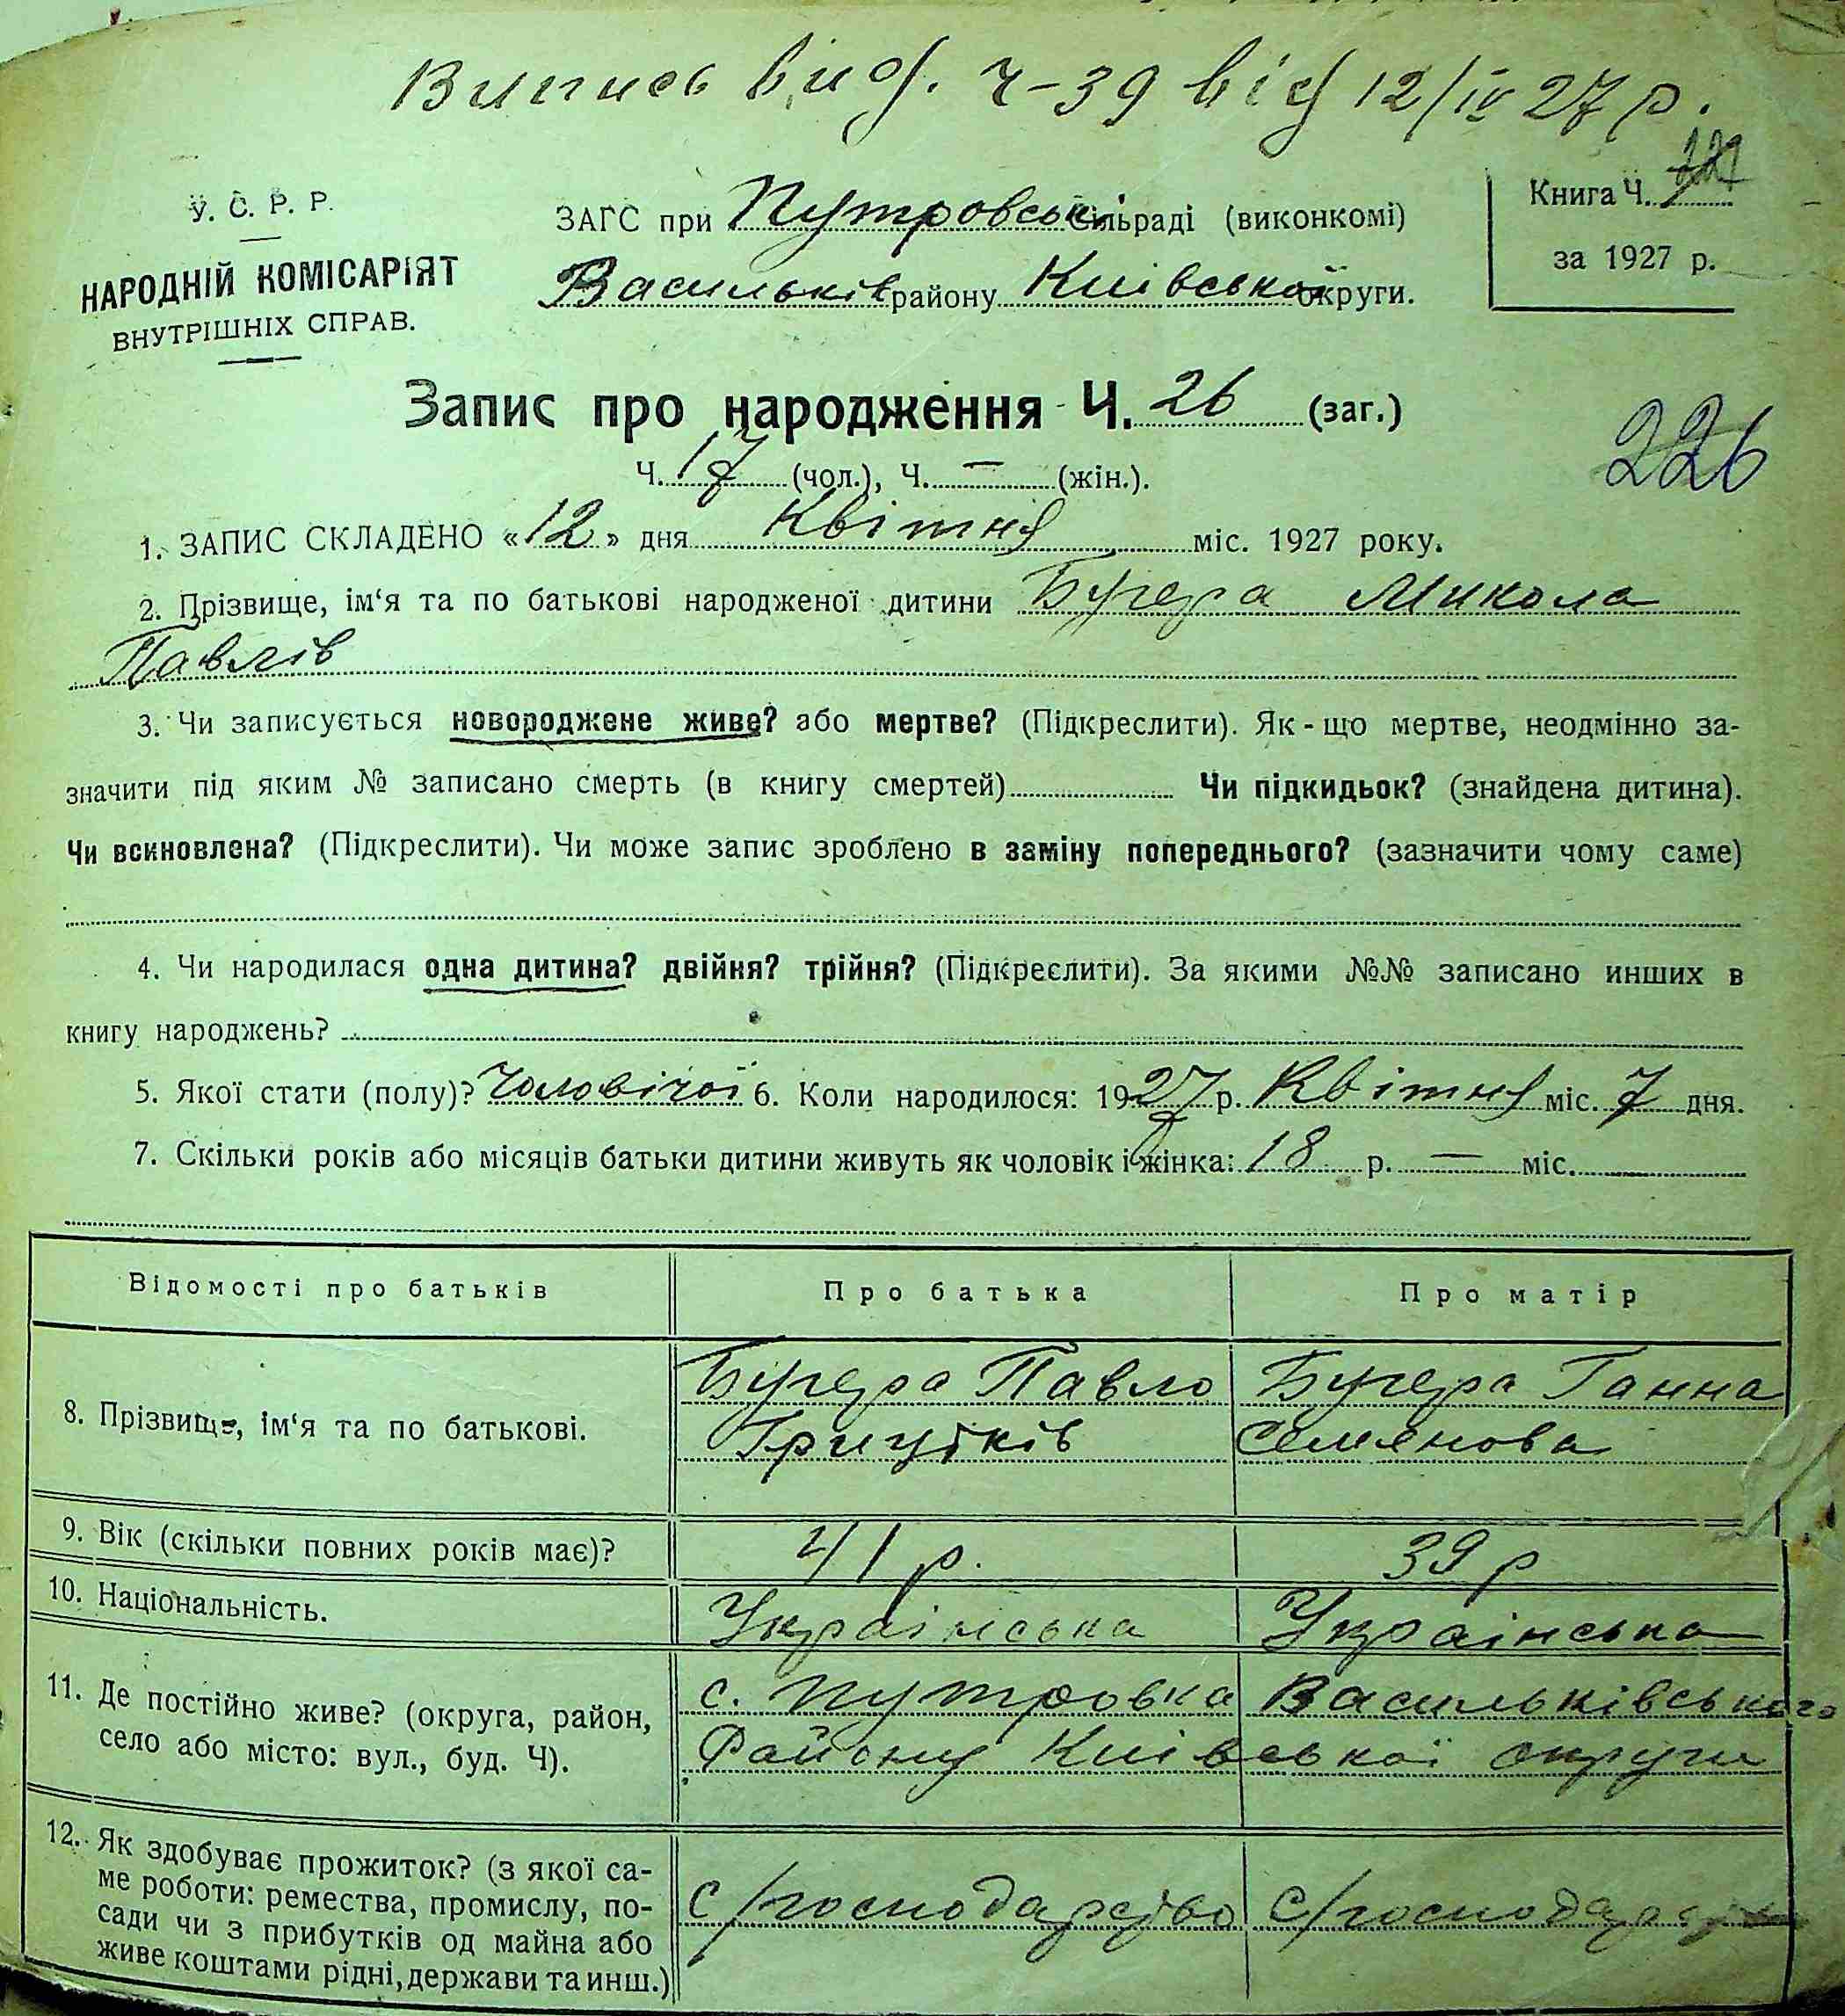 Випись вид. ч-39 від 12/IV 27 р.
У. С. Р. Р.
НАРОДНІЙ КОМІСАРІЯТ
ВНУТРІШНІХ СПРАВ.
ЗАГС при Путровськ. сільраді (виконкомі)
Васильків району Київської округи.
Книга Ч.
за 1927 р.
Запис про народження Ч. 26 (заг.)
Ч. 17 (чол.), Ч. — (жін.).
226
1. ЗАПИС СКЛАДЕНО «12» дня Квітня міс. 1927 року.
2. Прізвище, ім‘я та по батькові народженої дитини Бугера Микола
Павлів
3. Чи записується новороджене живе? або мертве? (Підкреслити). Як-що мертве, неодмінно за-
значити під яким № записано смерть (в книгу смертей) Чи підкидьок? (знайдена дитина).
Чи всиновлена? (Підкреслити). Чи може запис зроблено в заміну попереднього? (зазначити чому саме)
4. Чи народилася одна дитина? двійня? трійня? (Підкреслити). За якими №№ записано инших в
книгу народжень?
5. Якої стати (полу)? Чоловічої 6. Коли народилося: 1927 р. Квітня міс. 7 дня.
7. Скільки років або місяців батьки дитини живуть як чоловік і жінка: 18 р. — міс.
Відомості про батьків Про батька Про матір
8. Прізвище, ім‘я та по батькові.
Бугера Павло
Грицьків
Бугера Ганна
Семянова
9. Вік (скільки повних років має)? 41 р. 39 р
10. Національність. Українська Українська
11. Де постійно живе? (округа, район,
село або місто: вул., буд. Ч).
с. Путровка Васильківського
Району Київської округи
12. Як здобуває прожиток? (з якої са-
ме роботи: ремества, промислу, по-
сади чи з прибутків од майна або
живе коштами рідні, держави та инш.)
с/господарство с/господарство